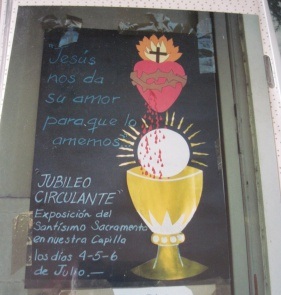 "Jesús
nos da
su amor
para que lo
amemos"
"JUBILEO
CIRCULANTE"
Exposición del
Santísimo Sacramento
en nuestra Capilla
los días 4-5-6
de Julio.—